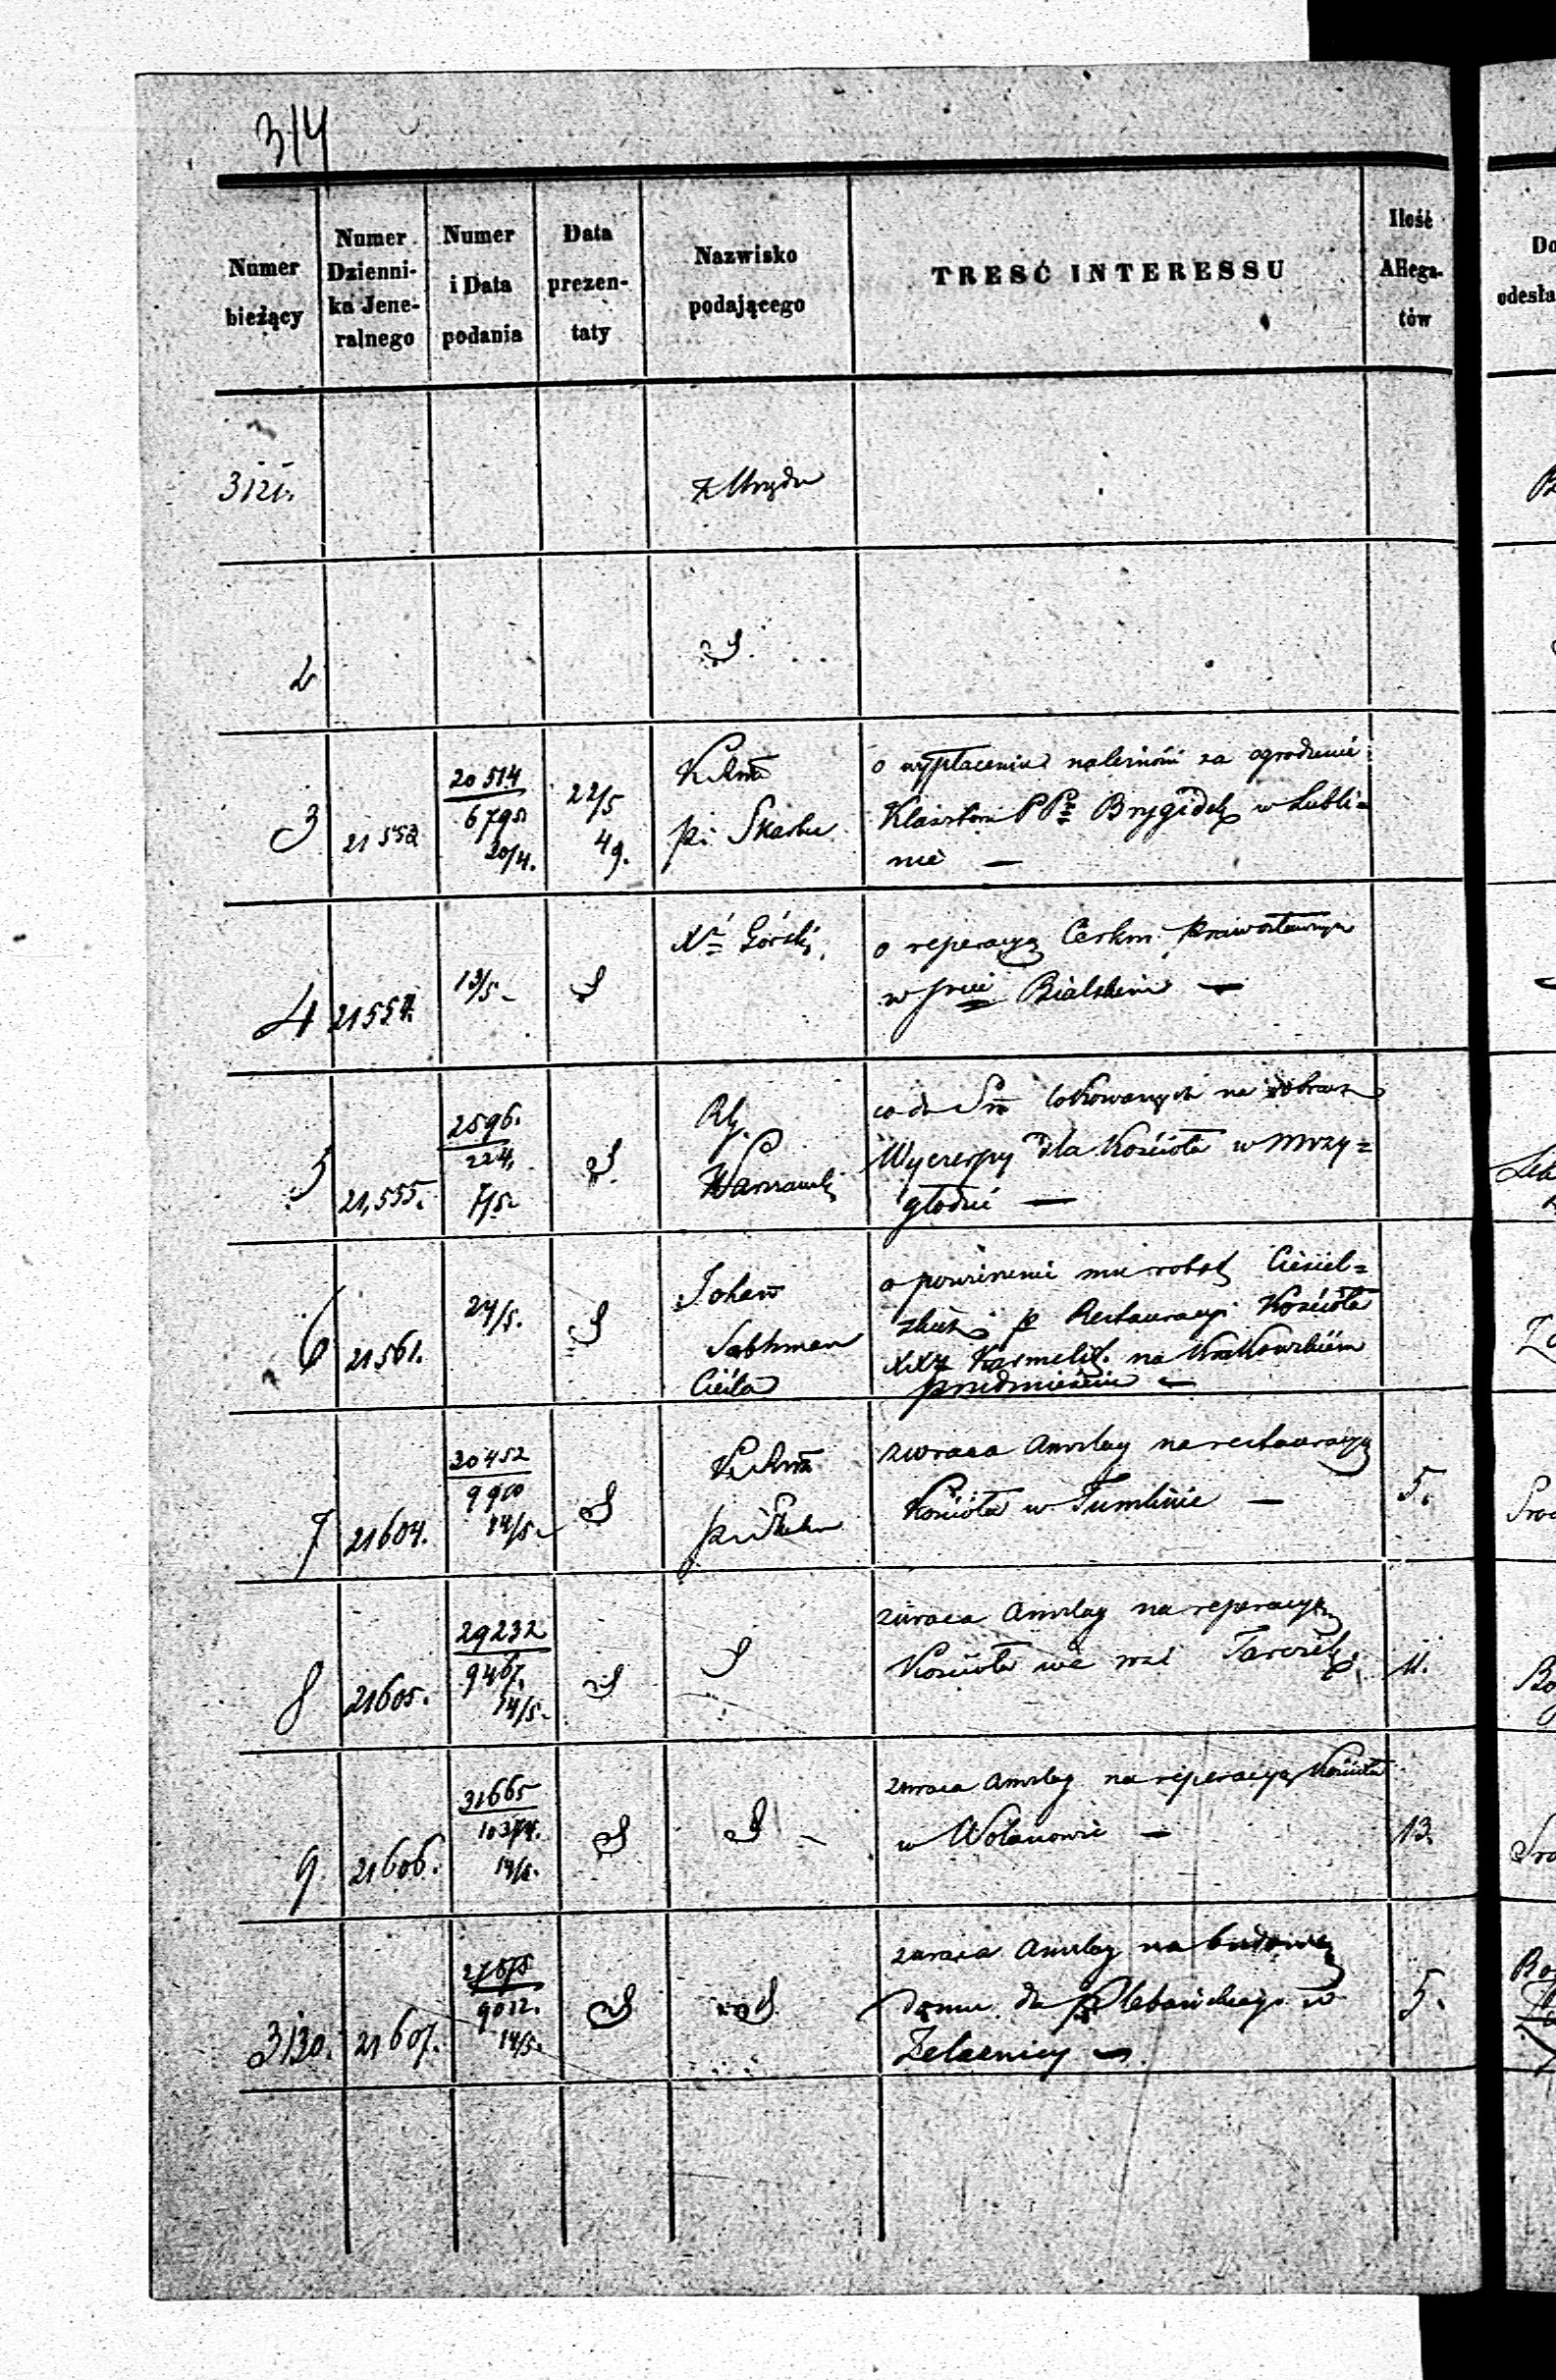 314
Numer bieżący
Numer Dzienni- ka Jene- ralnego
Numer i Data podania
Data prezen- taty
Nazwisko podającego
TRESĆ INTERESSU
Ilość Allega- tów
Do
odesła
3121.
z Urzędu
2
3
21553
20514
6795
20/4.
22/5
49.
pi Skarbu
o wypłacenie należności za ogrodzenie
Klasztoru PP. Brygidek w Lubli=
nie —
4
21554.
13/5
Górski
o reperacyą Cerkwi Prawosławnych
w Bialskim —
5
21,555.
2596.
224.
7/5
Warszawski
co do Sum lokowanych na dobrach
Wyczerpy dla Kościoła w Mrzy=
głodzie —
6
21561.
24/5.
Johan
Cieśla
o powierzenie mu robot Ciesiel=
skich p Restauracyi Kościoła
XX Karmelit. na Krakowskiem
przedmieściu —
7
21604.
30452
9960
14/5
zwraca Anszlag na restauracyą
Kościoła w Tumlinie —
5.
8
21605.
29232
9467.
14/5
zwraca Anszlag na reperacyą
Kościoła we wsi Tarczek.
11.
9
21606.
31665
10374.
14/5.
zwraca Anszlag na reperacyą Kościoła
w Wolanowie —
13.
3130.
21607.
27675
9022.
14/5.
zwraca Anszlag na budowę
domu da Plebańskiego w
Żelaznicy —
5.